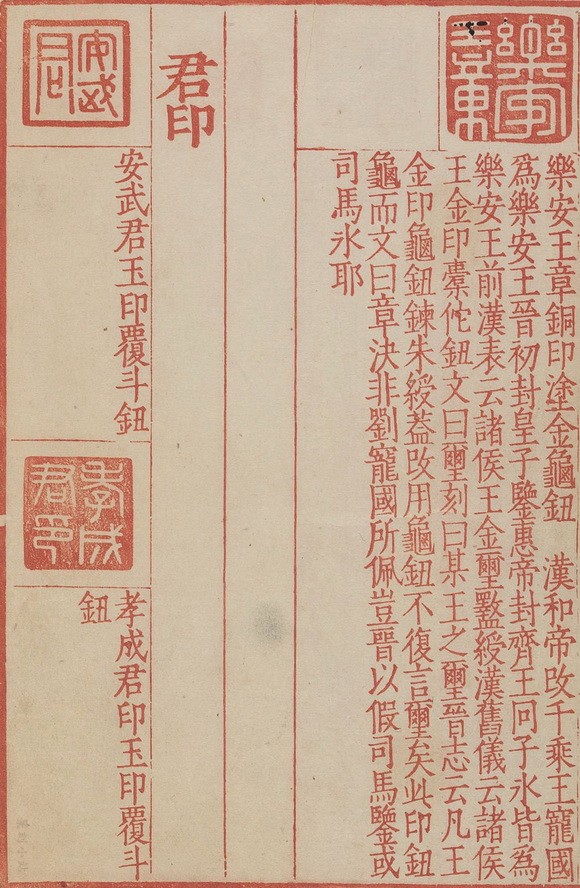 樂安
王章
樂安王章銅印塗金龜鈕　漢和帝改千乘王寵國
爲樂安王晉初封皇子鑒惠帝封齊王冏子氷皆爲
樂安王前漢表云諸侯王金璽盭綬漢舊儀云諸侯
王金印橐佗鈕文曰璽刻曰某王之璽晉志云凡王
金印龜鈕鍊朱綬蓋改用龜鈕不復言璽矣此印鈕
龜而文曰章決非劉寵國所佩豈晉以假司馬鑒或
司馬氷耶
君印
安武
君
安武君玉印覆斗鈕
孝成
君印
孝成君印玉印覆斗
鈕